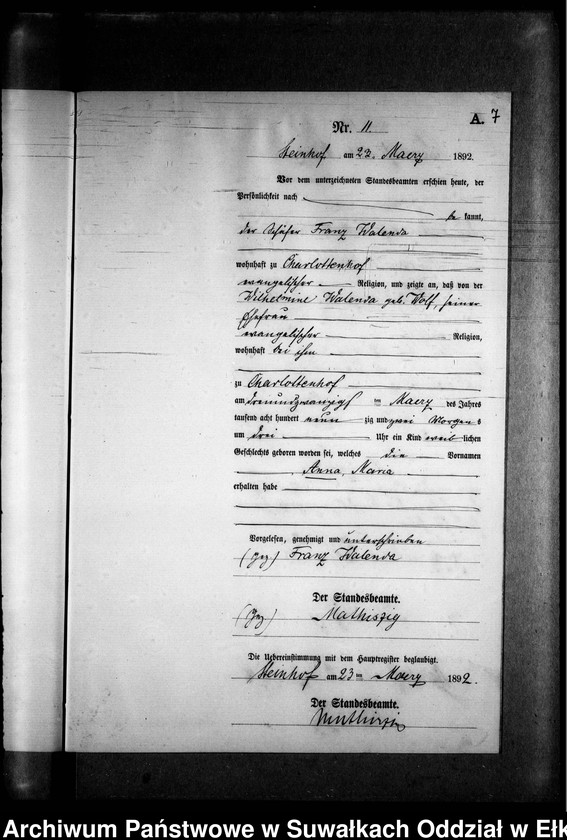 A. 7
Nr. 11
Steinhof am 23. Maerz 1892.
Vor dem unterzeichneten Standesbeamten erschien heute, der
Persönlichkeit nach
be kannt,
der Schäfer Franz Walenda
wohnhaft zu Charlottenhof
evangelischer Religion, und zeigte an, daß von der
Wilhelmine Walenda geb. Wolf, seiner
Ehefrau
evangelischer Religion,
wohnhaft bei ihm
zu Charlottenhof
am dreiundzwanzigst en Maerz des Jahres
tausend acht hundert neun zig und zwei Morgens
um drei Uhr ein Kind weib lichen
Geschlechts geboren worden sei, welches die Vornamen
Anna Maria
erhalten habe
Vorgelesen, genehmigt und unterschrieben
(gez) Franz Walenda
Der Standesbeamte.
(gez) Mathiszig
Die Uebereinstimmung mit dem Hauptregister beglaubigt.
Steinhof am 23 ten Maerz 1892.
Der Standesbeamte.
Mathiszig
Archiwum Państwowe w Suwałkach Oddział w Ełk